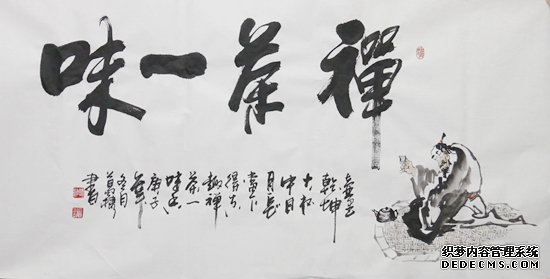 禪茶一味
壺里
乾坤
大杯
中日
月長
當下
得
趣禪
茶一
味
庚子
年
冬月
書
织梦内容管理系统
DEDECMS.COM